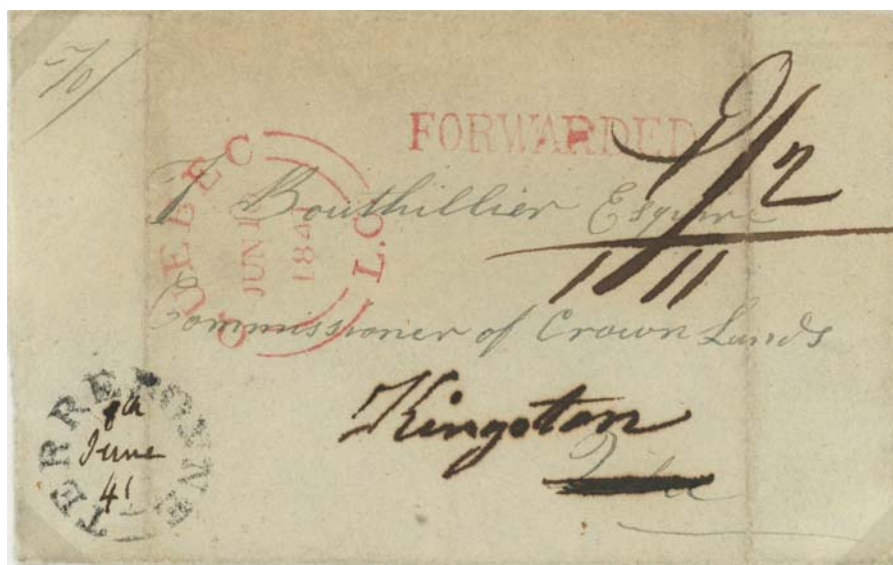 FORWARDED
QUEBEC L.C
JUN 1
184
T Bouthillier Esquire
1/11
Commissioner of Crown Lands
Kingston
TERREBONNE
8th
June
41